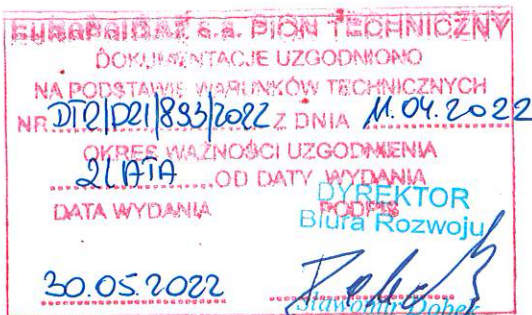 EUROPOLGAZ s.a. PION TECHNICZNY
DOKUMENTACJE UZGODNIONO
NA PODSTAWIE WARUNKÓW TECHNICZNYCH
NR DT2/DZ1/893/2022 Z DNIA 11.04.2022
OKRES WAŻNOŚCI UZGODNIENIA
2 LATA OD DATY WYDANIA
DATA WYDANIA PODPIS
DYREKTOR
Biura Rozwoju
30.05.2022
Sławomir Dobek